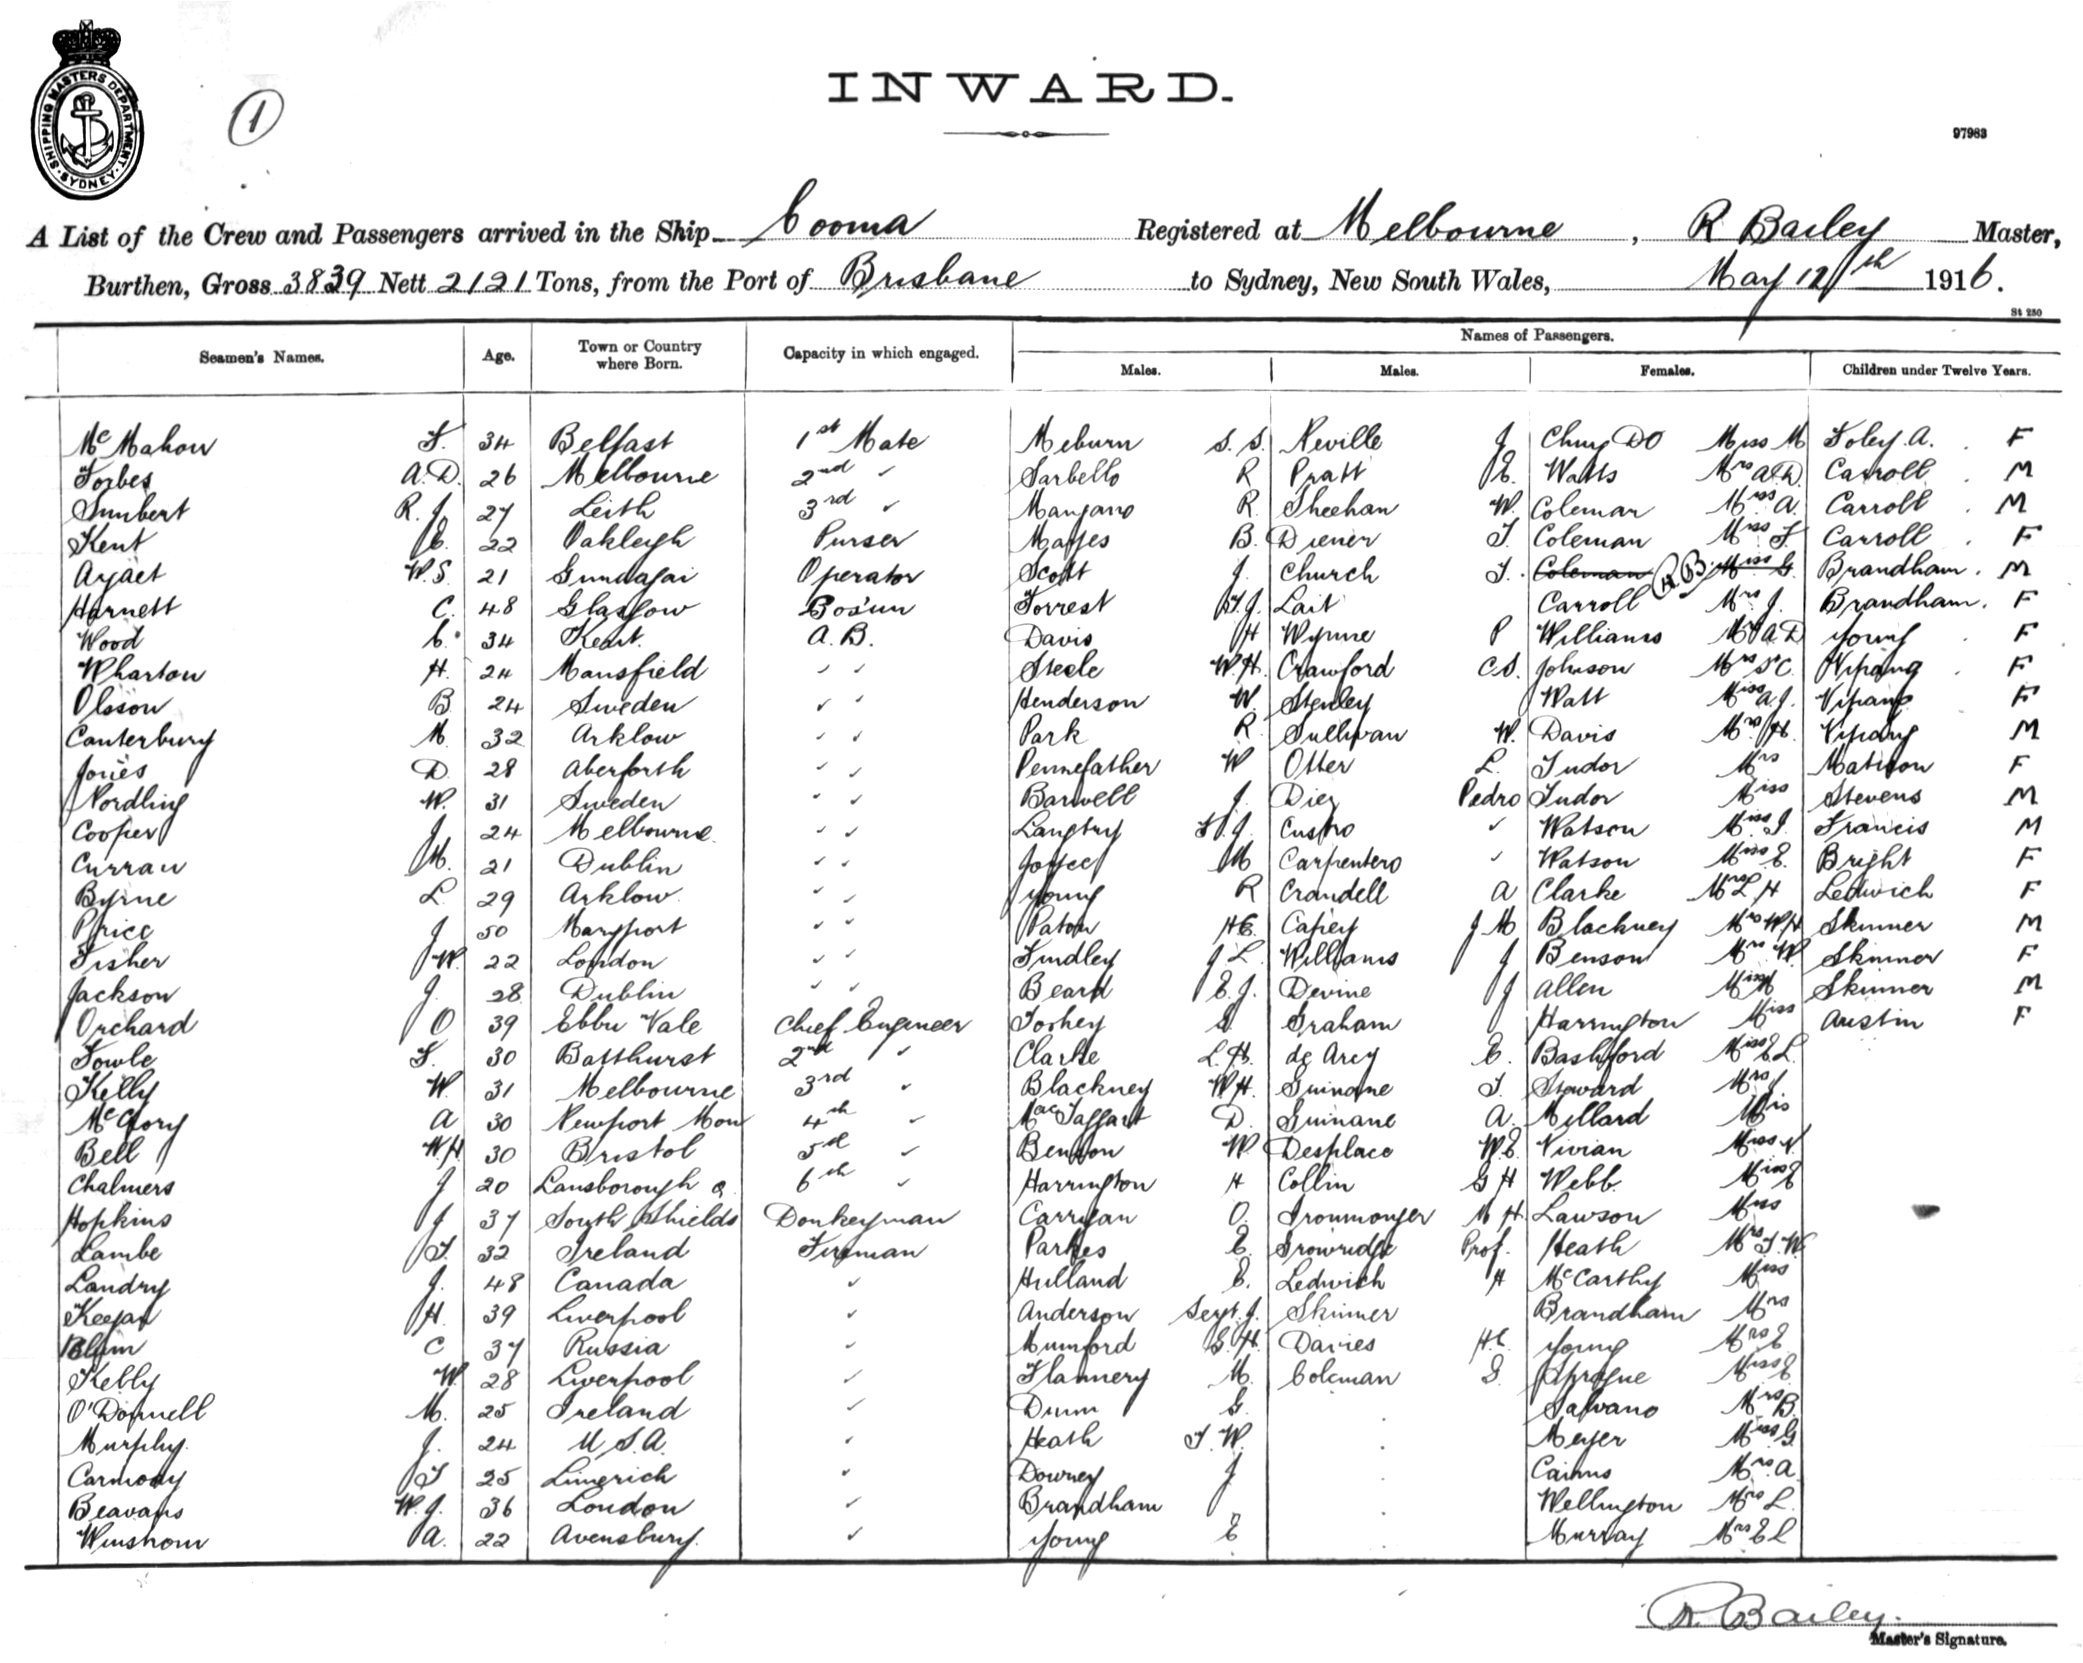 SHIPPING MASTERS DEPARTMENT
SYDNEY
1
INWARD.
97983
A List of the Crew and Passengers arrived in the Ship Cooma Registered at Melbourne, R Bailey Master,
Burthen, Gross 3839 Nett 2121 Tons, from the Port of Brisbane to Sydney, New South Wales, May 12th 1916.
St 230
Seamen's Names. Age. Town or Country where Born. Capacity in which engaged. Names of Passengers.
Males. Males. Females. Children under Twelve Years.
McMahon F. 34 Belfast 1st Mate Meburn S. S. Neville J Miss M Foley A. F
Forbes A.D. 26 Melbourne 2nd " Sarbello R Pratt E. Watts Mrs A.D. Carroll M
R. J. 27 Leith 3rd " Mangano R. Sheehan W. Coleman Miss A. Carroll M
Kent E. 22 Oakleigh Purser Mayes B. Diener T. Coleman Miss F. Carroll F
W.S. 21 Gundagai Operator Scott J. Church T. Coleman R.B. Miss G. Brandham M
Harnett C. 48 Glasgow Bos'un Forrest T.J. Lait Carroll Mrs J. Brandham F
Wood C. 34 Kent. A.B. Davis H Wynne P Williams A D Young F
Wharton H. 24 Mansfield " " Steele W.H. Crawford C.S. Johnson Mrs S C Vipang F
Olsson B. 24 Sweden " " Henderson W. Stenley Watt Miss A.J. Vipang F
Canterbury M. 32 Arklow " " Park R. Sullivan W. Davis Mrs H. Vipang M
Jones D. 28 Aberforth " " Pennefather W Otter L. Tudor Mrs Matison F
Nordling W. 31 Sweden " " Barwell J. Diez Pedro Tudor Miss Stevens M
Cooper J. 24 Melbourne " " Langtry J. Castro " Watson Miss J. Francis M
Curran M. 21 Dublin " " Joyce M Carpentero " Watson Miss E. Bright F
Byrne L 29 Arklow " " Young R Crandell A Clarke Mrs L H Ledwich F
Price J 50 Maryport " " Paton H E. Capey J M Blackney Mrs W H Skinner M
Fisher W. 22 London " " Findley J L. Williams J Benson Mrs W. Skinner F
Jackson J. 28 Dublin " " Beard E. J. Devine J Allen Miss Skinner M
Orchard O 39 Ebbu Vale Chief Engineer Torhey Graham J Harrington Miss Austin F
Fowle F. 30 Batthurst 2nd " Clarke L. H. de Arcy E. Bashford Miss E L.
Kelly W. 31 Melbourne 3rd " Blackney W H. Guinane T. Steward Mrs J.
McGlory A 30 Newport Mon 4th " MacTaggart D. Guinane A. Millard Mis
Bell W H 30 Bristol 5th " Benson W. Desplace W.E. Vivian Miss N.
Chalmers J 20 Lansborough Q 6th " Harrington H Collin G H Webb Miss E
Hopkins J 37 South Shields Donkeyman Carrigan O. Ironmonger M H. Lawson Miss
Lambe T. 32 Ireland Fireman Parkes E. Trowridge Prof. Heath Mrs T. W.
Landry J. 48 Canada " Hulland E. Ledwich H McCarthy Miss
Keegan H. 39 Liverpool " Anderson Sergt. J. Skinner Brandham Mrs
Blum C 37 Russia " Mumford G. H. Davies H.C. Young Mrs E
Kelly W. 28 Liverpool " Flannery M. Coleman S. Sprague Miss E.
O'Donnell M. 25 Ireland " Dunn G. Salvano Mrs B.
Murphy J. 24 U.S.A. " Heath T. W. Meyer Miss G.
Carmody T 25 Limerich " Downey J Cairns Mrs A.
Beavans W. J. 36 London " Brandham Wellington Mrs L.
Winstrom A. 22 Avensbury " Young E Murray Mrs E L
R. Bailey.
Master's Signature.